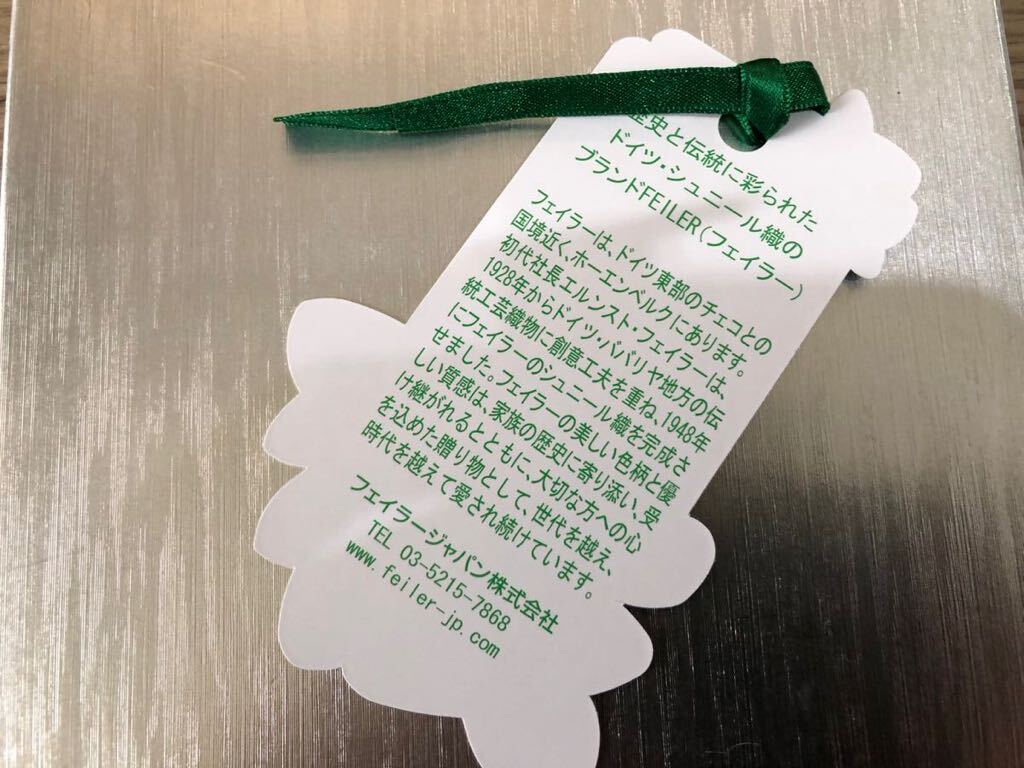 歴史と伝統に彩られた
ドイツ・シュニール織の
ブランドFEILER(フェイラー)
フェイラーは、ドイツ東部のチェコとの
国境近く、ホーエンベルクにあります。
初代社長エルンスト・フェイラーは、
1928年からドイツ・ババリヤ地方の伝
統工芸織物に創意工夫を重ね、1948年
にフェイラーのシュニール織を完成さ
せました。フェイラーの美しい色柄と優
しい質感は、家族の歴史に寄り添い、受
け継がれるとともに、大切な方への心
を込めた贈り物として、世代を越え、
時代を越えて愛され続けています。
フェイラージャパン株式会社
TEL 03-5215-7868
www.feiler-jp.com